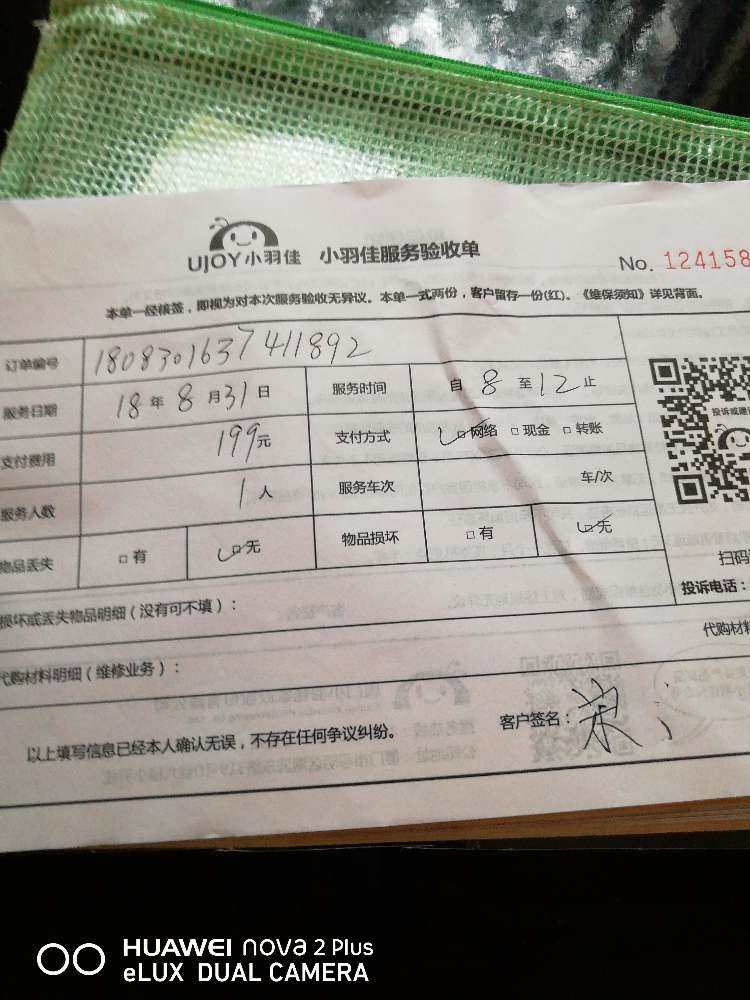 UJOY小羽佳 小羽佳服务验收单
No. 124158
本单一经核签，即视为对本次服务验收无异议。本单一式两份，客户留存一份(红)。《维保须知》详见背面。
订单编号 1808301637411892
服务日期 18年8月31日 服务时间 自8至12止
支付费用 199元 支付方式 网络 现金 转账
服务人数 1人 服务车次 车/次
物品丢失 有 无 物品损坏 有 无
投诉或建
扫码
投诉电话：
损坏或丢失物品明细（没有可不填）：
代购材料
代购材料明细（维修业务）：
以上填写信息已经本人确认无误，不存在任何争议纠纷。 客户签名：
HUAWEI nova 2 Plus
eLUX DUAL CAMERA